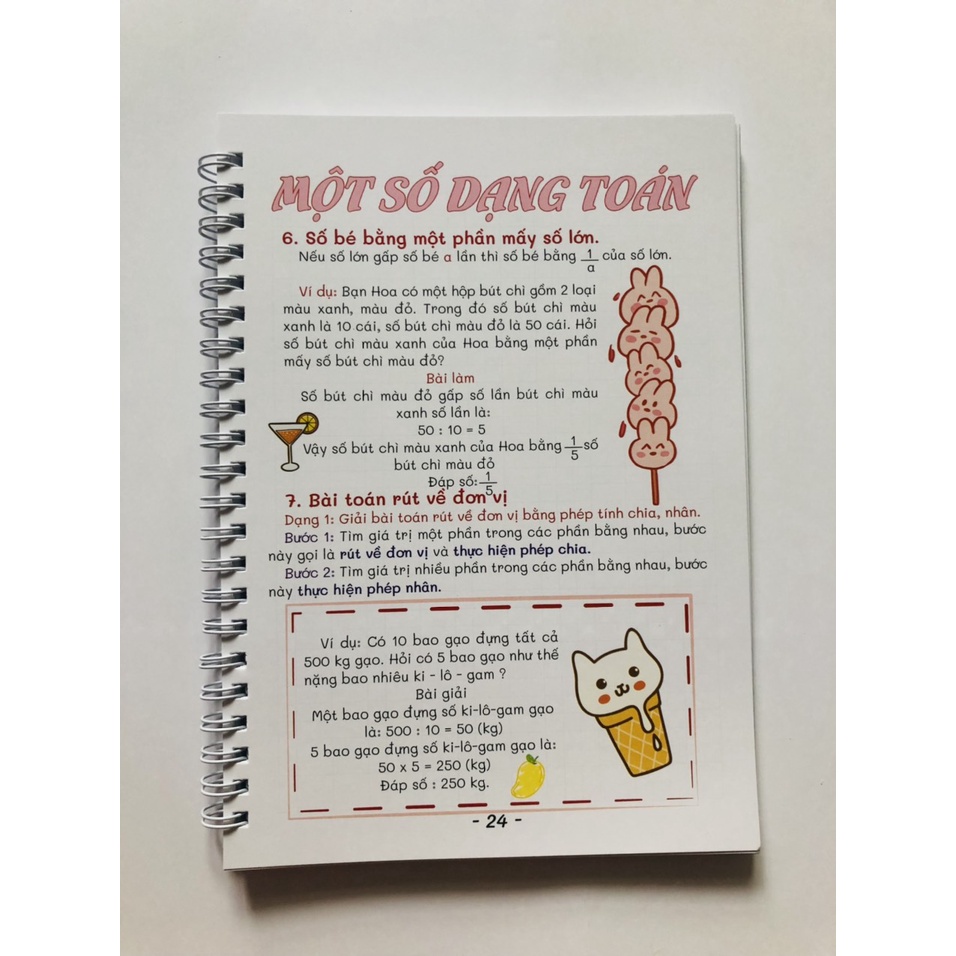 MỘT SỐ DẠNG TOÁN
6. Số bé bằng một phần mấy số lớn.
Nếu số lớn gấp số bé a lần thì số bé bằng 1/a của số lớn.
Ví dụ: Bạn Hoa có một hộp bút chì gồm 2 loại
màu xanh, màu đỏ. Trong đó số bút chì màu
xanh là 10 cái, số bút chì màu đỏ là 50 cái. Hỏi
số bút chì màu xanh của Hoa bằng một phần
mấy số bút chì màu đỏ?
Bài làm
Số bút chì màu đỏ gấp số lần bút chì màu
xanh số lần là:
50 : 10 = 5
Vậy số bút chì màu xanh của Hoa bằng 1/5 số
bút chì màu đỏ
Đáp số: 1/5
7. Bài toán rút về đơn vị
Dạng 1: Giải bài toán rút về đơn vị bằng phép tính chia, nhân.
Bước 1: Tìm giá trị một phần trong các phần bằng nhau, bước
này gọi là rút về đơn vị và thực hiện phép chia.
Bước 2: Tìm giá trị nhiều phần trong các phần bằng nhau, bước
này thực hiện phép nhân.
Ví dụ: Có 10 bao gạo đựng tất cả
500 kg gạo. Hỏi có 5 bao gạo như thế
nặng bao nhiêu ki - lô - gam ?
Bài giải
Một bao gạo đựng số ki-lô-gam gạo
là: 500 : 10 = 50 (kg)
5 bao gạo đựng số ki-lô-gam gạo là:
50 x 5 = 250 (kg)
Đáp số : 250 kg.
- 24 -